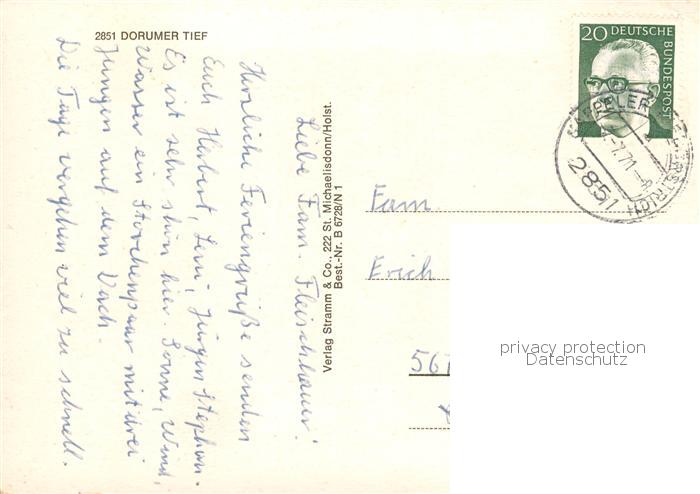 2851 DORUMER TIEF
Liebe Fam. Fleischhauer!
Herzliche Feriengrüße senden
Euch Herbert, Leni, Jürgen Stephan.
Es ist sehr schön hier. Sonne, Wind,
Wasser ein Storchenpaar mit drei
Jungen auf dem Dach.
Die Tage vergehen viel zu schnell.
Verlag Stramm & Co., 222 St. Michaelisdonn/Holst.
Best.-Nr. B 6728/N 1
20 DEUTSCHE
BUNDESPOST
2851
Fam
Erich
567
privacy protection
Datenschutz